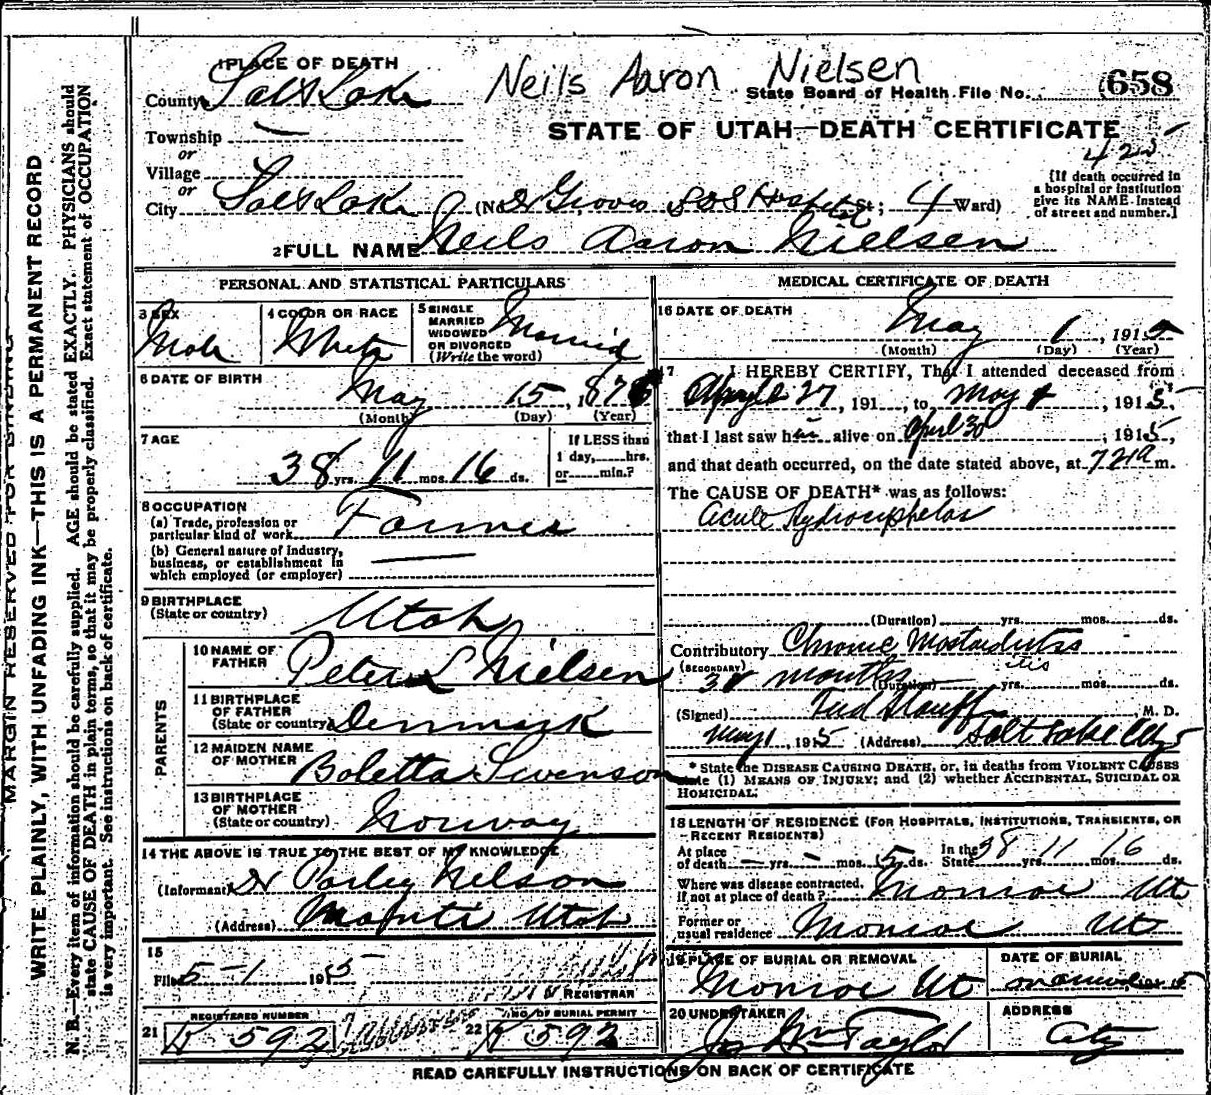 1 PLACE OF DEATH
Neils Aaron Nielsen
County Salt Lake
State Board of Health File No. 658
Township —
STATE OF UTAH—DEATH CERTIFICATE
or
425
Village
or
City Salt Lake (No. Dr Groves LDS Hospital St; 4 Ward)
[If death occurred in
a hospital or institution
give its NAME instead
of street and number.]
2 FULL NAME Neils Aaron Nielsen
PERSONAL AND STATISTICAL PARTICULARS
3 SEX
Male
4 COLOR OR RACE
White
5 SINGLE
MARRIED
WIDOWED
OR DIVORCED
(Write the word)
Married
6 DATE OF BIRTH
May 15, 1876
(Month) (Day) (Year)
7 AGE
38 yrs. 11 mos. 16 ds.
If LESS than
1 day, hrs.
or min.?
8 OCCUPATION
(a) Trade, profession or
particular kind of work Farmer
(b) General nature of industry,
business, or establishment in
which employed (or employer)
9 BIRTHPLACE
(State or country) Utah
PARENTS
10 NAME OF
FATHER Peter L Nielsen
11 BIRTHPLACE
OF FATHER
(State or country) Denmark
12 MAIDEN NAME
OF MOTHER Boletta Swenson
13 BIRTHPLACE
OF MOTHER
(State or country) Norway
14 THE ABOVE IS TRUE TO THE BEST OF MY KNOWLEDGE
(Informant) Parley Nelson
(Address) Utah
15
Filed 5-1 1915
REGISTRAR
REGISTERED NUMBER
21 K 592
NO. OF BURIAL PERMIT
22 K 592
MEDICAL CERTIFICATE OF DEATH
16 DATE OF DEATH
May 1, 1915
(Month) (Day) (Year)
17 I HEREBY CERTIFY, That I attended deceased from
April 27, 191 , to May 1, 1915,
that I last saw him alive on April 30, 1915,
and that death occurred, on the date stated above, at 7 21a m.
The CAUSE OF DEATH* was as follows:
Acute Hydrocephelas
(Duration) yrs. mos. ds.
Contributory Chronic Mastoiditis
(SECONDARY)
itis
months (Duration) yrs. mos. ds.
(Signed) Fred Stauffer, M. D.
May 1, 1915 (Address) Salt Lake City
* State the DISEASE CAUSING DEATH, or, in deaths from VIOLENT CAUSES
state (1) MEANS OF INJURY; and (2) whether ACCIDENTAL, SUICIDAL OR
HOMICIDAL.
18 LENGTH OF RESIDENCE (FOR HOSPITALS, INSTITUTIONS, TRANSIENTS, OR
RECENT RESIDENTS)
At place
of death — yrs. — mos. 5 ds.
In the
State 38 yrs. 11 mos. 16 ds.
Where was disease contracted,
if not at place of death? Monroe Ut
Former or
usual residence Monroe Ut
19 PLACE OF BURIAL OR REMOVAL
Monroe Ut
DATE OF BURIAL
20 UNDERTAKER
Jos Wm Taylor
ADDRESS
City
READ CAREFULLY INSTRUCTIONS ON BACK OF CERTIFICATE
MARGIN RESERVED FOR BINDING
WRITE PLAINLY, WITH UNFADING INK—THIS IS A PERMANENT RECORD
N. B.—Every item of information should be carefully supplied. AGE should be stated EXACTLY. PHYSICIANS should
state CAUSE OF DEATH in plain terms, so that it may be properly classified. Exact statement of OCCUPATION
is very important. See instructions on back of certificate.